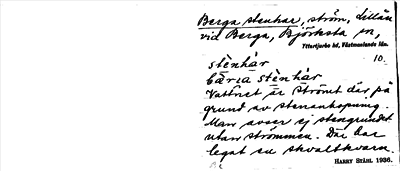 Berga stenhar, ström, Lillån
vid Berga, Björksta sn,
Yttertjurbo hd, Västmanlands län.
10.
stènhàr
bæ̀rja stènhàr
Vattnet är strömt där på
grund av stenanhopning.
Man avser ej stengrundet
utan strömmen. Där har
legat en skvaltkvarn.
HARRY STÅHL 1936.